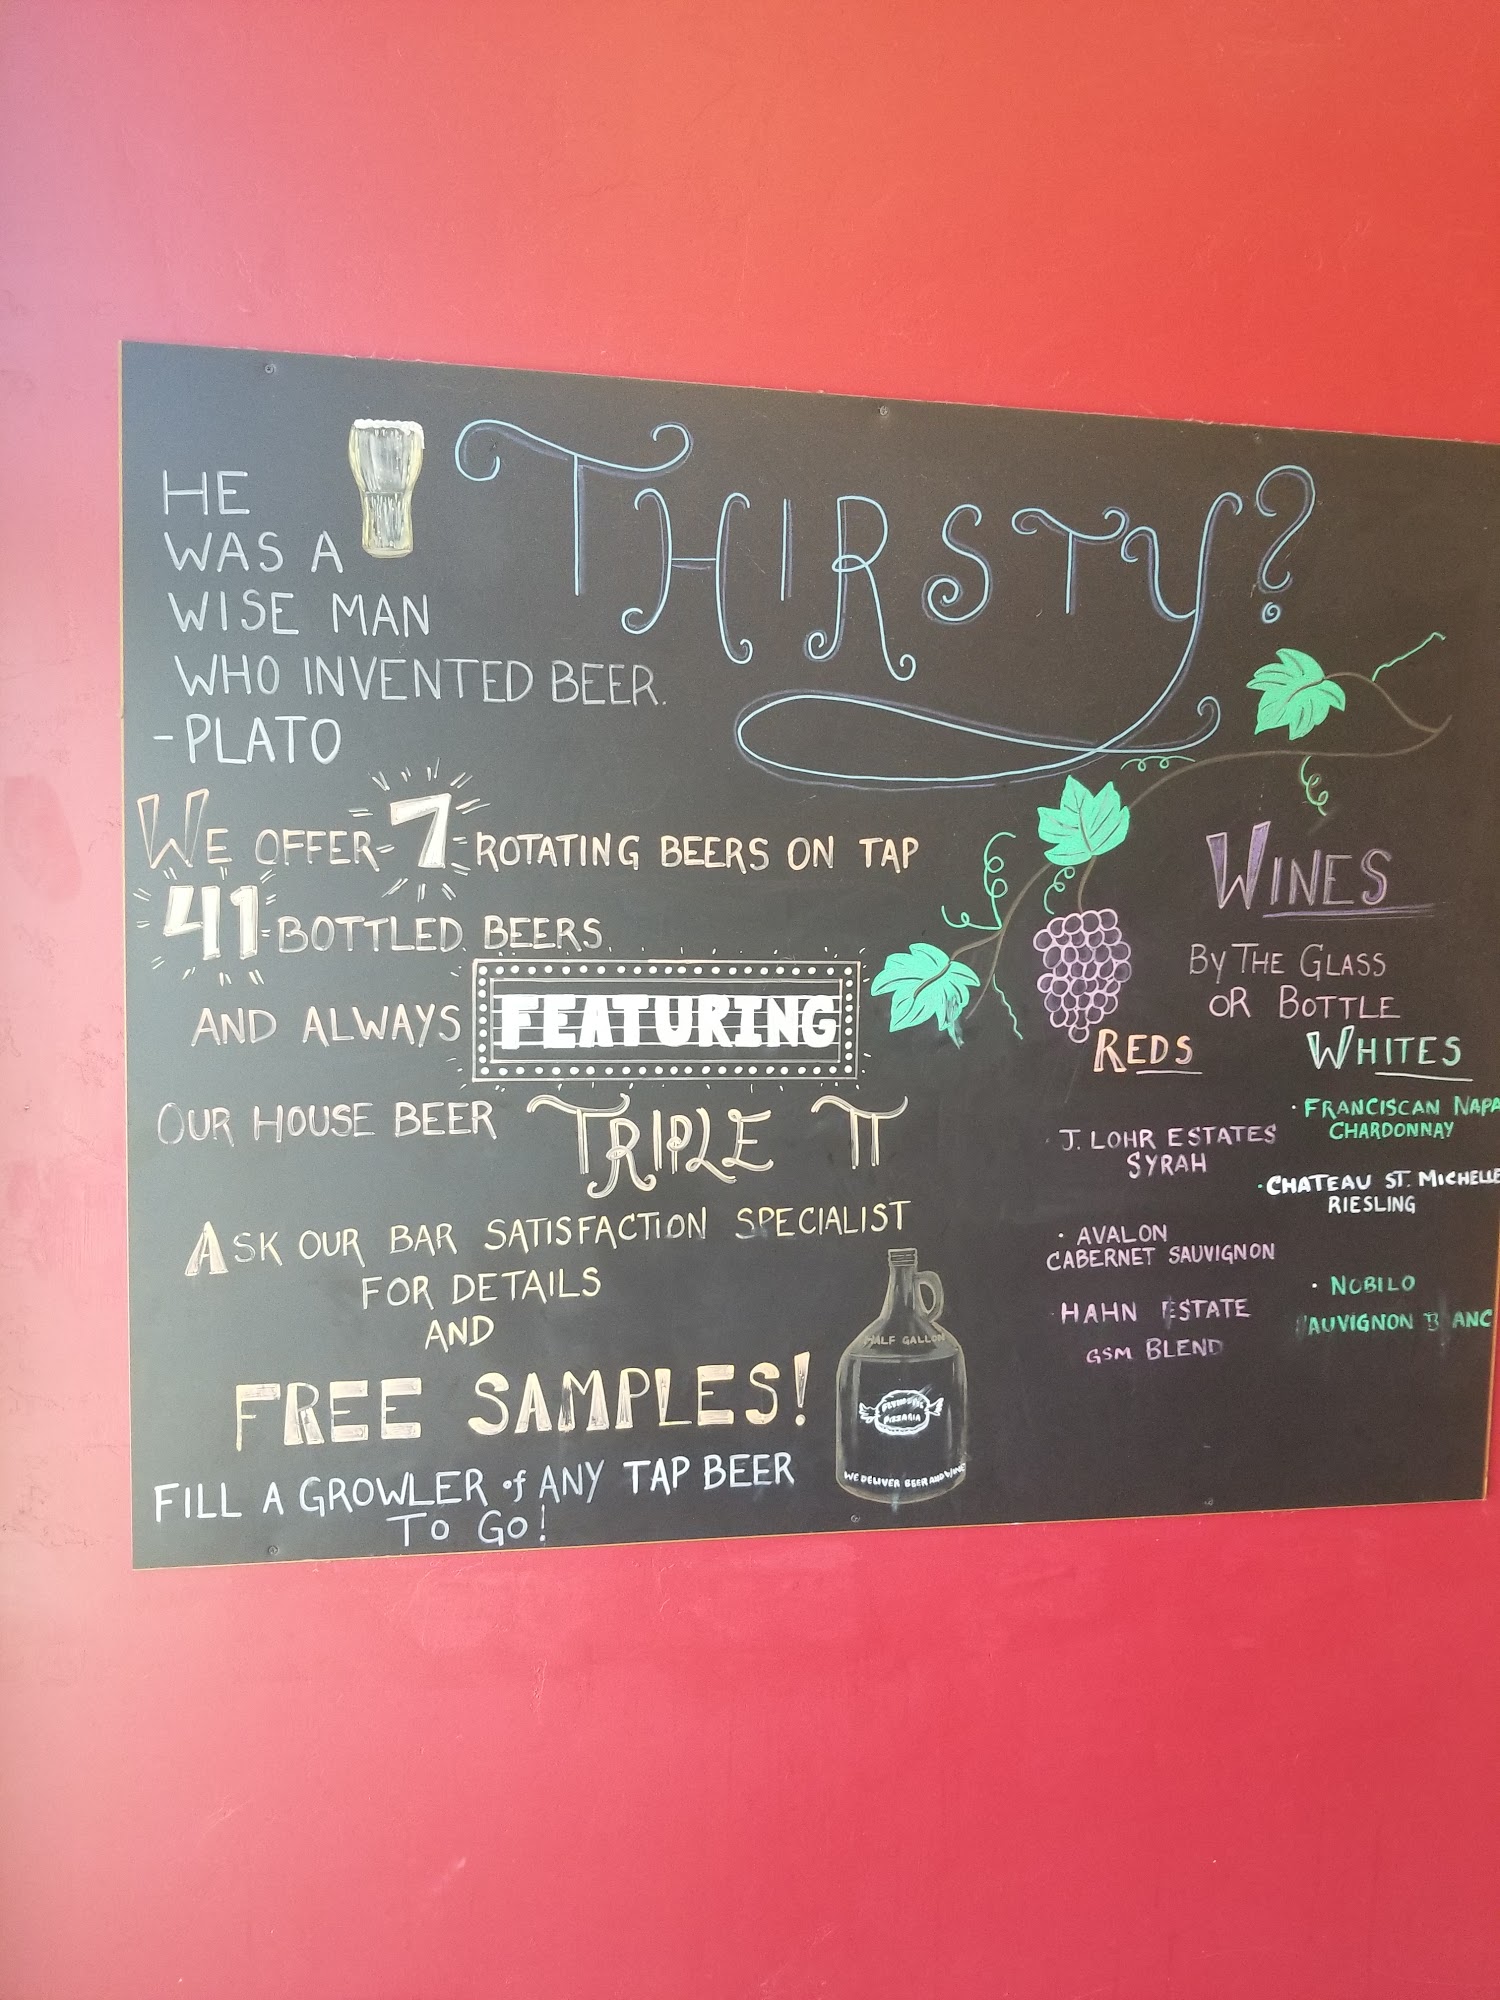 THIRSTY?
HE
WAS A
WISE MAN
WHO INVENTED BEER.
-PLATO
WE OFFER 7 ROTATING BEERS ON TAP
41 BOTTLED BEERS
AND ALWAYS FEATURING
OUR HOUSE BEER TRIPLE π
ASK OUR BAR SATISFACTION SPECIALIST
FOR DETAILS
AND
FREE SAMPLES!
FILL A GROWLER of ANY TAP BEER
TO GO!
HALF GALLON
PIZZARIA
WE DELIVER BEER AND WINE
WINES
BY THE GLASS
OR BOTTLE
REDS
· J. LOHR ESTATES
SYRAH
· AVALON
CABERNET SAUVIGNON
· HAHN ESTATE
GSM BLEND
WHITES
· FRANCISCAN NAPA
CHARDONNAY
· CHATEAU ST. MICHELLE
RIESLING
· NOBILO
AUVIGNON B ANC